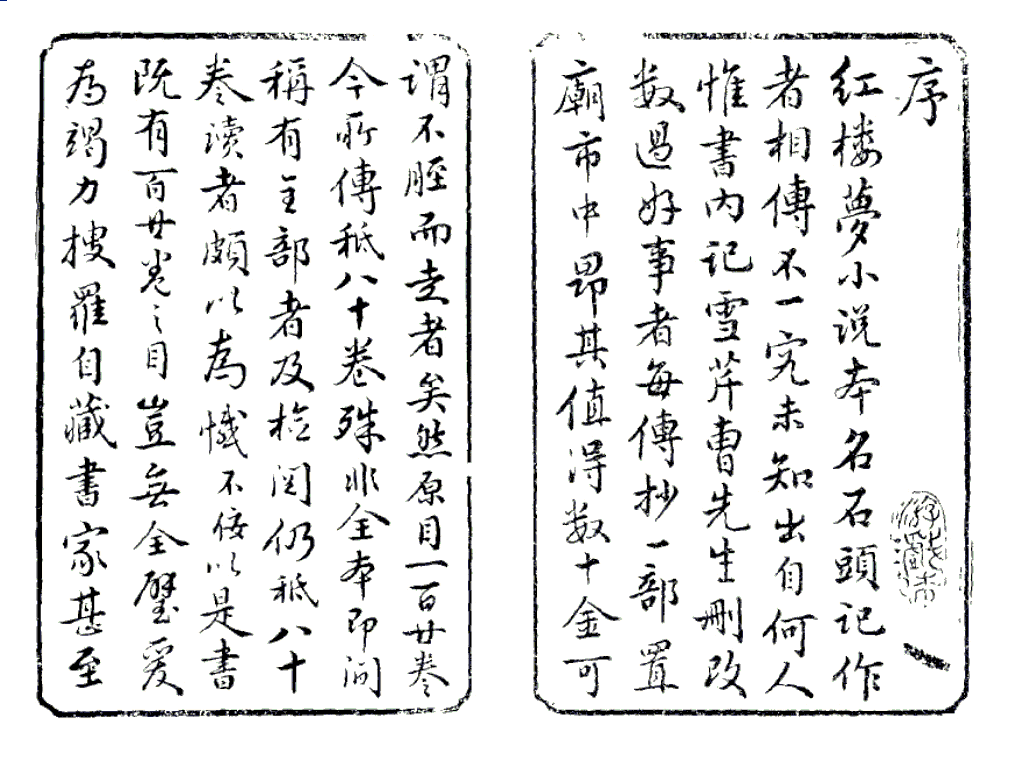 序
红楼夢小说本名石頭记作
者相傳不一究未知出自何人
惟書内记雪芹曹先生删改
数過好事者每傳抄一部置
廟市中昂其值得数十金可
謂不脛而走者矣然原目一百廿卷
今所傳秪八十卷殊非全本即间
稱有全部者及检阅仍秪八十
卷读者頗以為憾不佞以是書
既有百廿卷之目豈無全璧爰
为竭力搜羅自藏書家甚至